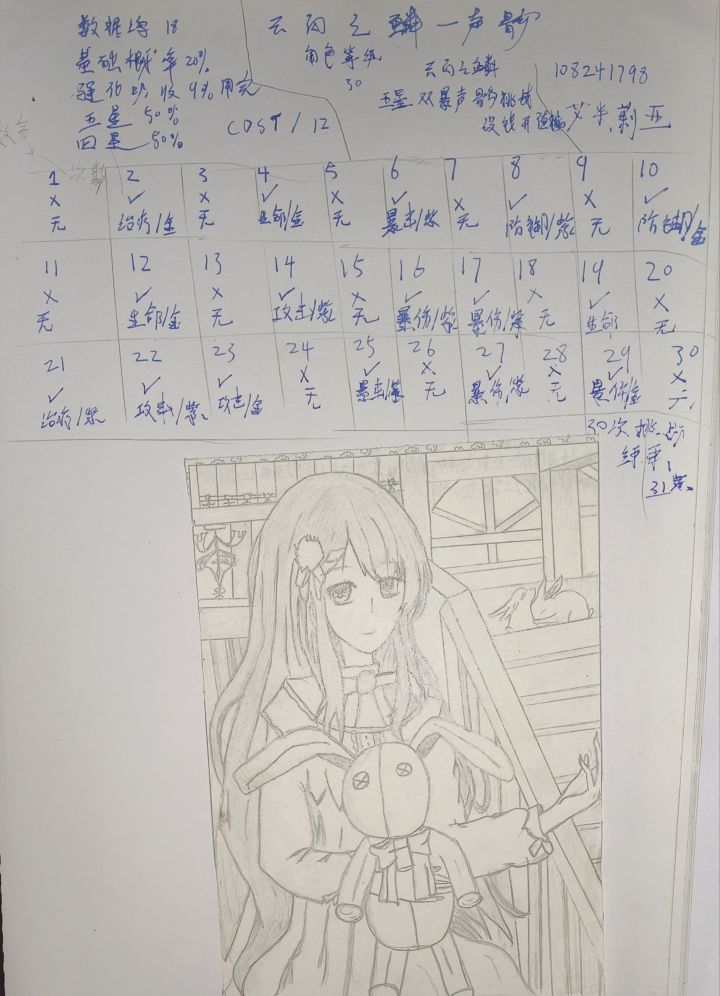 数据坞 18
云闪之鳞一声骸
基础概率20%
角色等级
30
云闪之鳞
108241798
强化吸收 9% 用完
五星双暴声骸挑战
没钱开
艾米莉亚
五星 50%
四星 50%
COST / 12
次数
1 2 3 4 5 6 7 8 9 10
× ✓ × ✓ × ✓ × ✓ × ✓
无 治疗/金 无 生命/金 无 暴击/紫 无 防御/紫 无 防御/金
11 12 13 14 15 16 17 18 19 20
× ✓ × ✓ × ✓ ✓ × ✓ ×
无 生命/金 无 攻击/紫 无 暴伤/紫 暴伤/紫 无 生命 无
21 22 23 24 25 26 27 28 29 30
✓ ✓ ✓ × ✓ × ✓ × ✓ ×
治疗/紫 攻击/紫 攻击/金 无 暴击/紫 无 暴伤/紫 无 暴伤/金 无
30次挑战
结束!